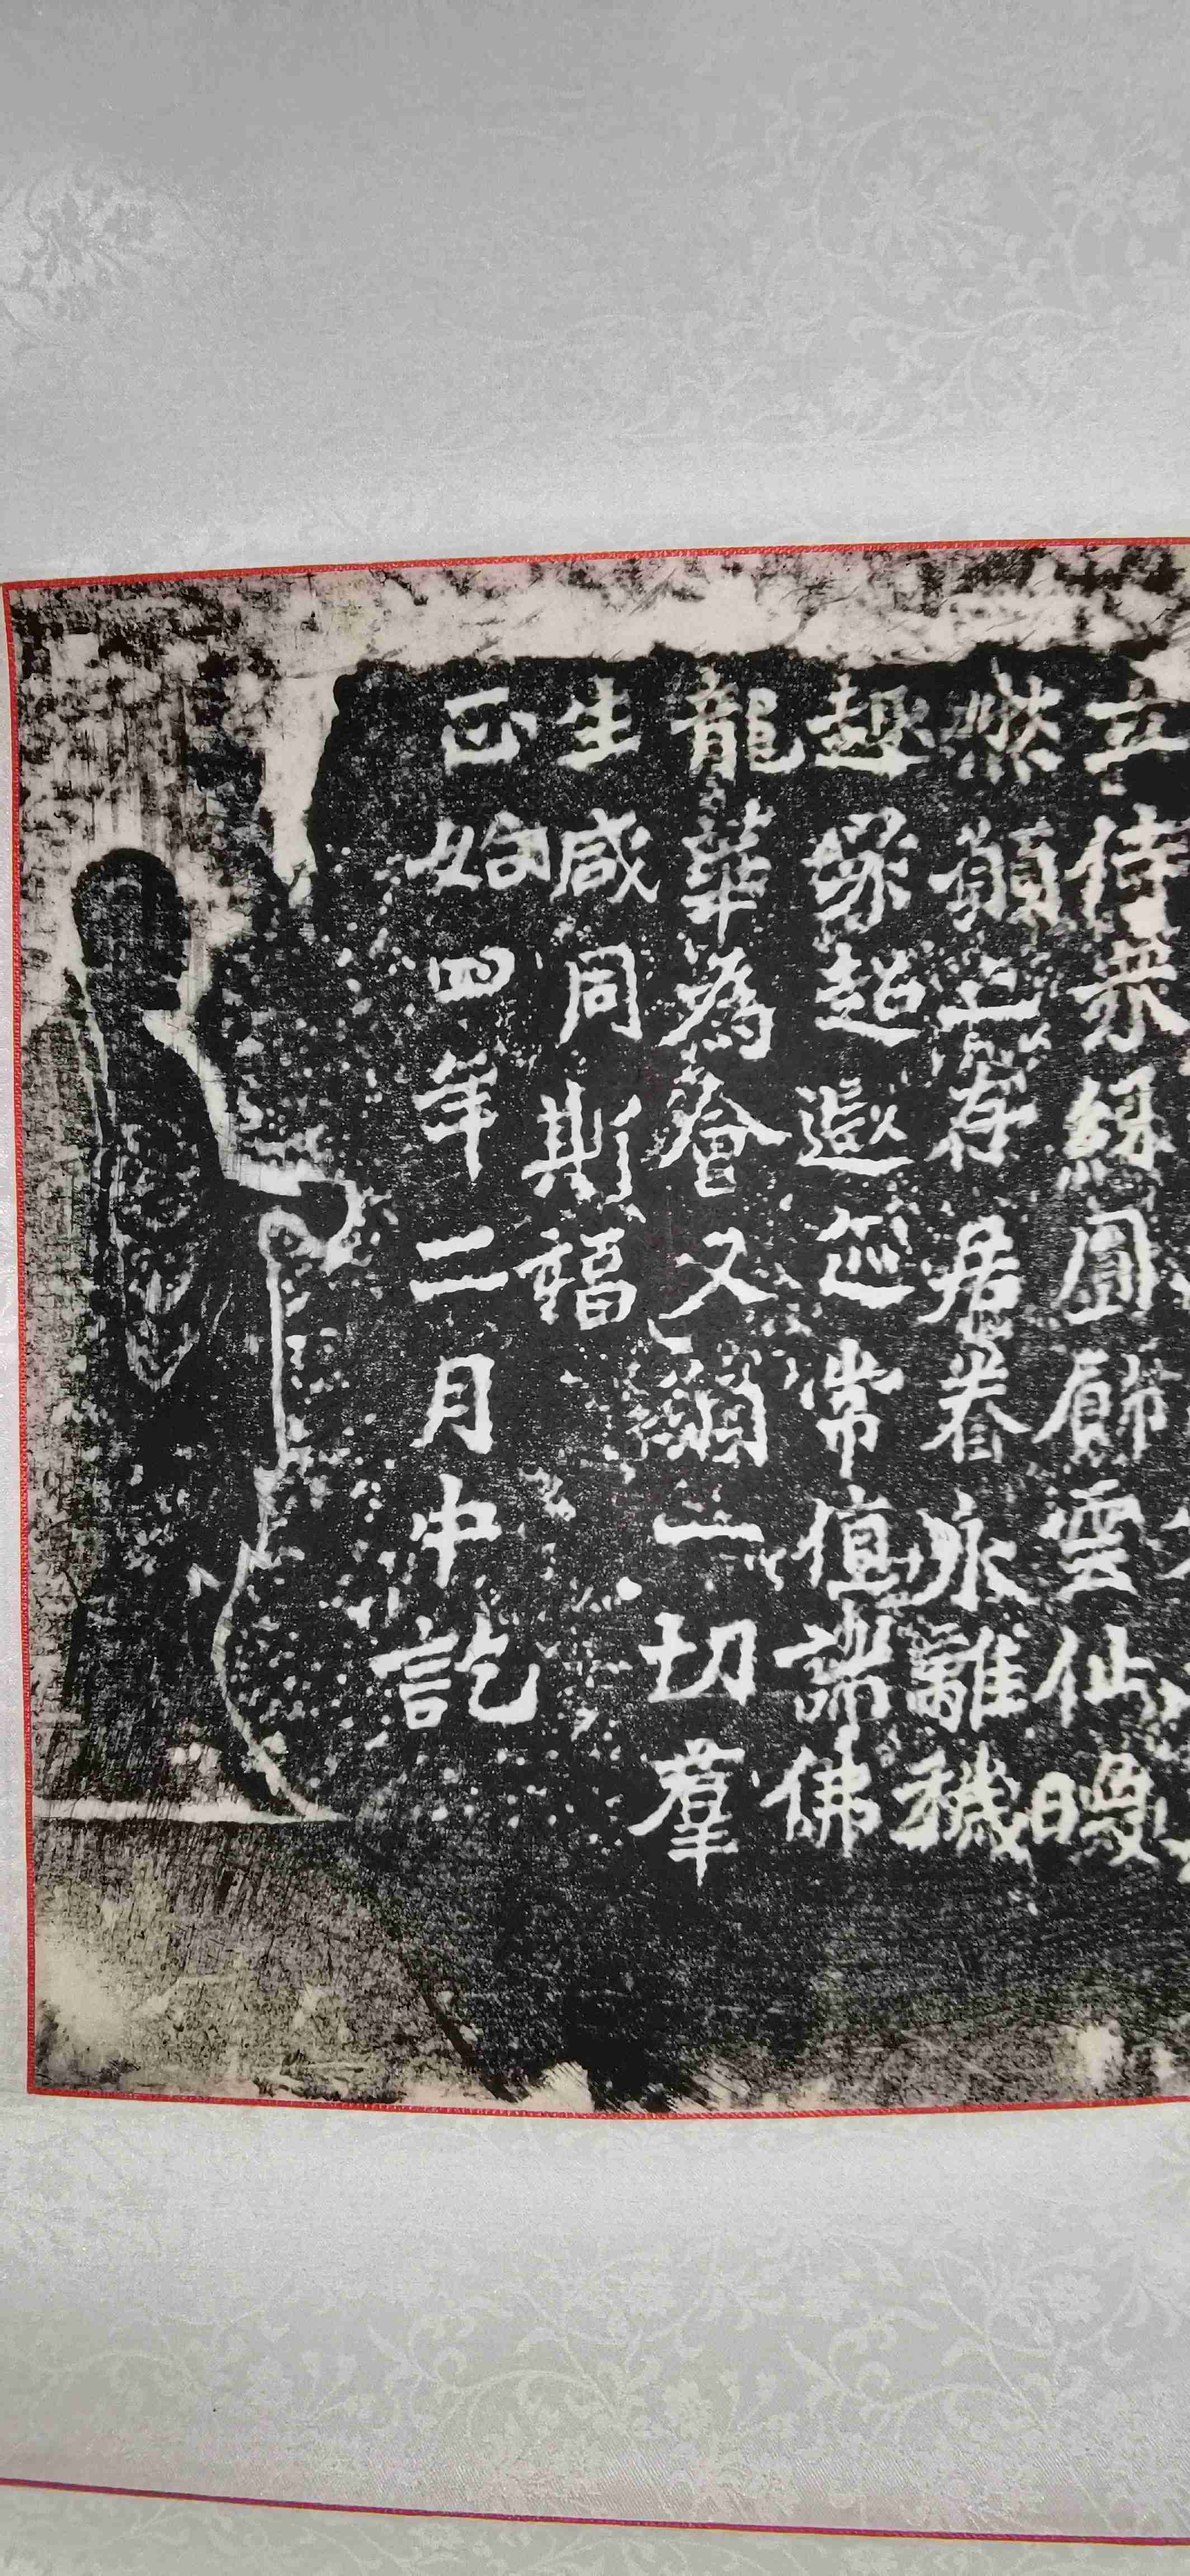 立侍衆綵圓飾雲仙曖
然願亡存居眷永離穢
趣緣超遐迩常值諸佛
龍華為會又願一切羣
生咸同斯福
正始四年二月中訖